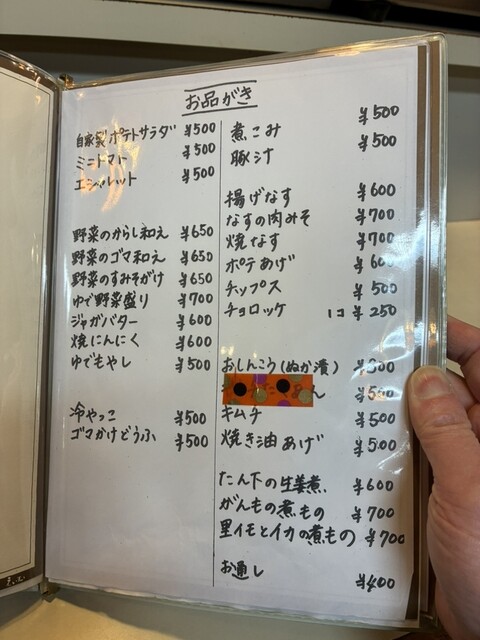 お品がき
自家製ポテトサラダ ¥500
ミニトマト ¥500
エシャレット ¥500
野菜のからし和え ¥650
野菜のゴマ和え ¥650
野菜のすみそがけ ¥650
ゆで野菜盛り ¥700
ジャガバター ¥600
焼にんにく ¥600
ゆでもやし ¥500
冷やっこ ¥500
ゴマかけどうふ ¥500
煮こみ ¥500
豚汁 ¥500
揚げなす ¥600
なすの肉みそ ¥700
焼なす ¥700
ポテあげ ¥600
チップス ¥500
チョロッケ 1コ ¥250
おしんこう(ぬか漬) ¥800
ん ¥500
キムチ ¥500
焼き油あげ ¥500
たん下の生姜煮 ¥600
がんもの煮もの ¥700
里イモとイカの煮もの ¥700
お通し ¥400